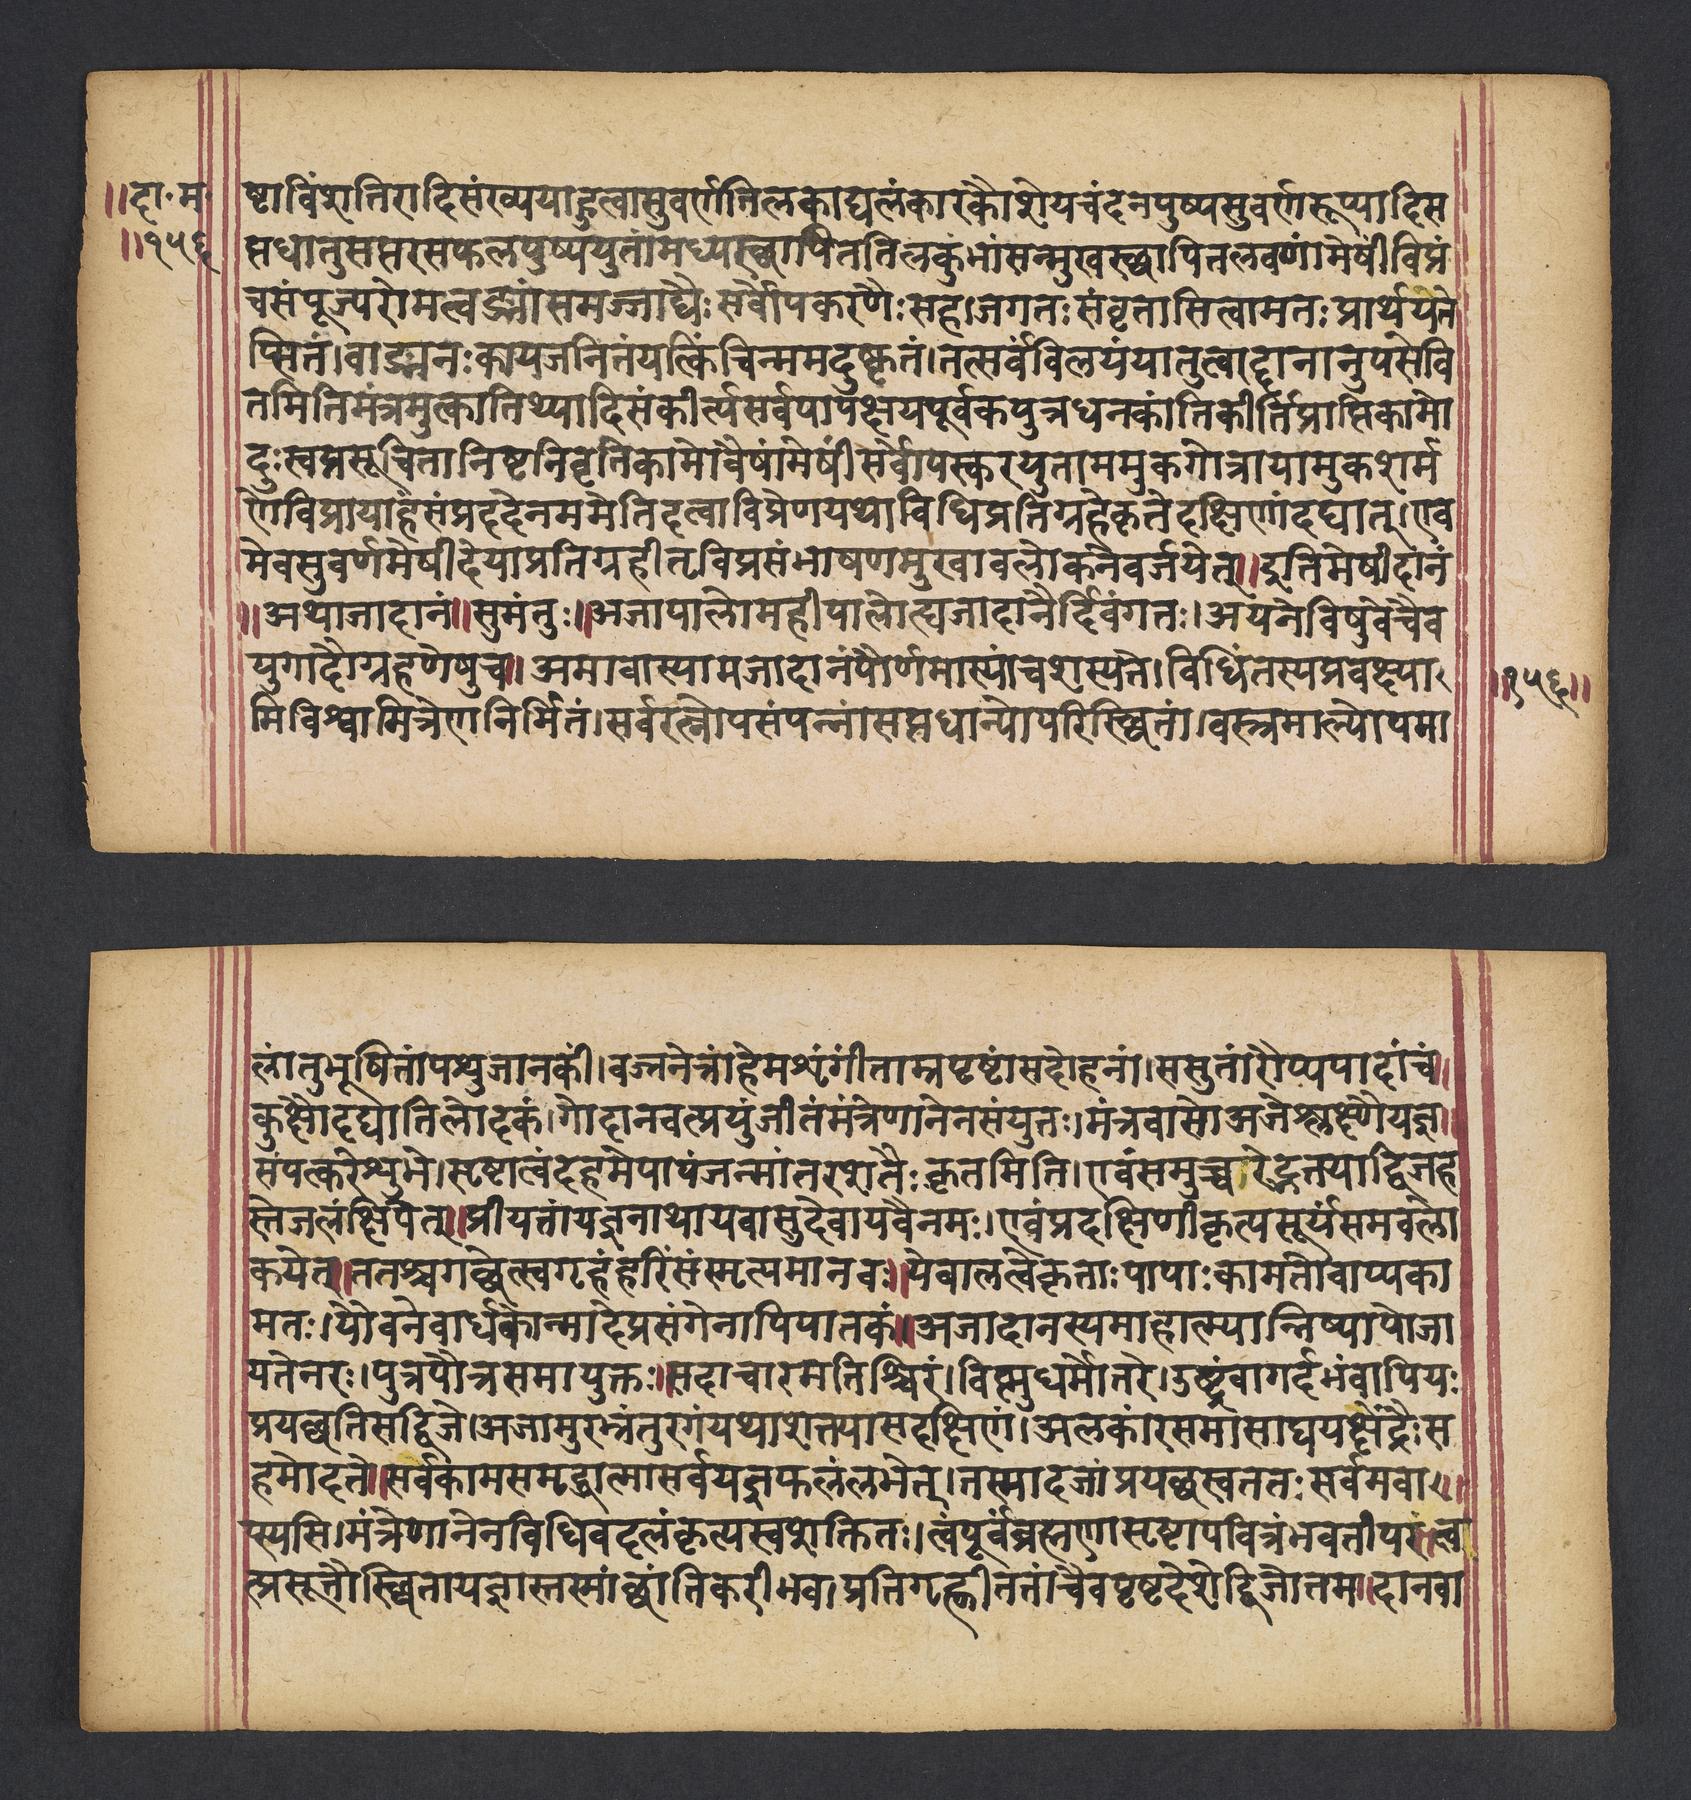 ॥दा॰म॰
॥१५६
ष्टाविंशतिरादिसंख्ययाहुत्वासुवर्णतिलकाद्यलंकारकौशेयचंदनपुष्पसुवर्णरूप्यादिस
प्तधातुसप्तरसफलपुष्पयुतांमध्यस्थापिततिलकुंभांसन्मुखस्थापितलवणांमेषींविप्रं
चसंपूज्यरोमत्वङ्मांसमज्जाद्यैःसर्वोपकरणैःसह।जगतःसंवृतासित्वामतःप्रार्थयेते
प्सितं।वाङ्मनःकायजनितंयत्किंचिन्ममदुष्कृतं।तत्सर्वंविलयंयातुत्वद्दानानुपसेवि
तमितिमंत्रमुक्त्कातिथ्यादिसंकीर्त्यसर्वपापक्षयपूर्वकपुत्रधनकांतिकीर्तिप्राप्तिकामो
दुःस्वप्नसूचितानिष्टनिवृत्तिकामोवैषांमेषींसर्वोपस्करयुताममुकगोत्रायामुकशर्म
णेविप्रायाहंसंप्रददेनममेतिदत्वाविप्रेणयथाविधिप्रतिग्रहेकृतेदक्षिणांदद्यात्।एव
मेवसुवर्णमेषीदेयाप्रतिग्रहीतृविप्रसंभाषणमुखावलोकनेवर्जयेत्॥इतिमेषीदानं
॥अथाजादानं॥सुमंतुः॥अजापालोमहीपालोत्द्यजादानैर्दिवंगतः।अयनेविषुवेचैव
युगादौग्रहणेषुच॥अमावास्यामजादानंपौर्णमास्यांचशस्यते।विधिंतस्यप्रवक्ष्या
मिविश्वामित्रेणनिर्मितं।सर्वरत्नोपसंपन्नांसप्तधान्योपरिस्थितां।वस्त्रमाल्योपमा
॥१५६॥
लांतुभूषितांपश्युजानकीं।वज्रनेत्रांहेमशृंगींताम्रपृष्टांसदोहनां।ससुतांरौप्यपादांचं॥
कुक्षौदद्यातिलोदकं।गोदानवत्प्रयुंजीतंमंत्रेणानेनसंयुतः।मंत्रवासोअजेश्लक्ष्णेयज्ञ॥
संपत्करेश्युभे।सृष्टात्वंदेहमेपापंजन्मांतरशतैःकृतमिति।एवंसमुच्चरेद्भक्तयाद्विजह
स्तेजलंक्षिपेत्॥प्रीयतांयज्ञनाथायवासुदेवायवैनमः।एवंप्रदक्षिणीकृत्यसूर्यंसमवलो
कयेत्॥ततश्चगच्छेत्स्वगृहंहरिंसंस्मृत्यमानवः॥येबालत्वेकृताःपापाःकामतोवाप्यका
मतः।यौवनेवार्धकोन्मादेप्रसंगेनापिपातकं॥अजादानस्यमाहात्म्यान्निष्पापोजा
यतेनरः।पुत्रपौत्रसमायुक्तः॥सदाचारमतिश्चिरं।विष्णुधर्मोतरे।उष्ट्रंवागर्दभंवापियः
प्रयच्छतिसद्विजे।अजामुरभ्रंतुरगंयथाशक्तयासदक्षिणं।अलकांसमासाद्ययक्षेंद्रैःस
हमोदते॥सर्वकामसमृद्धात्मासर्वयज्ञफलंलभेत्।तस्मादजांप्रयच्छस्वततःसर्वमवा
प्स्यसि।मंत्रेणानेनविधिवदलंकृत्यस्वशक्तितः।त्वंपूर्वंब्रह्मणासृष्टापवित्रंभवतीपरा।त्व
त्प्रसूतौस्थितायज्ञास्तस्मांछांतिकरीभव।प्रतिगृह्णीततांचैवपृष्टदेशेद्विजोतम।दानवा